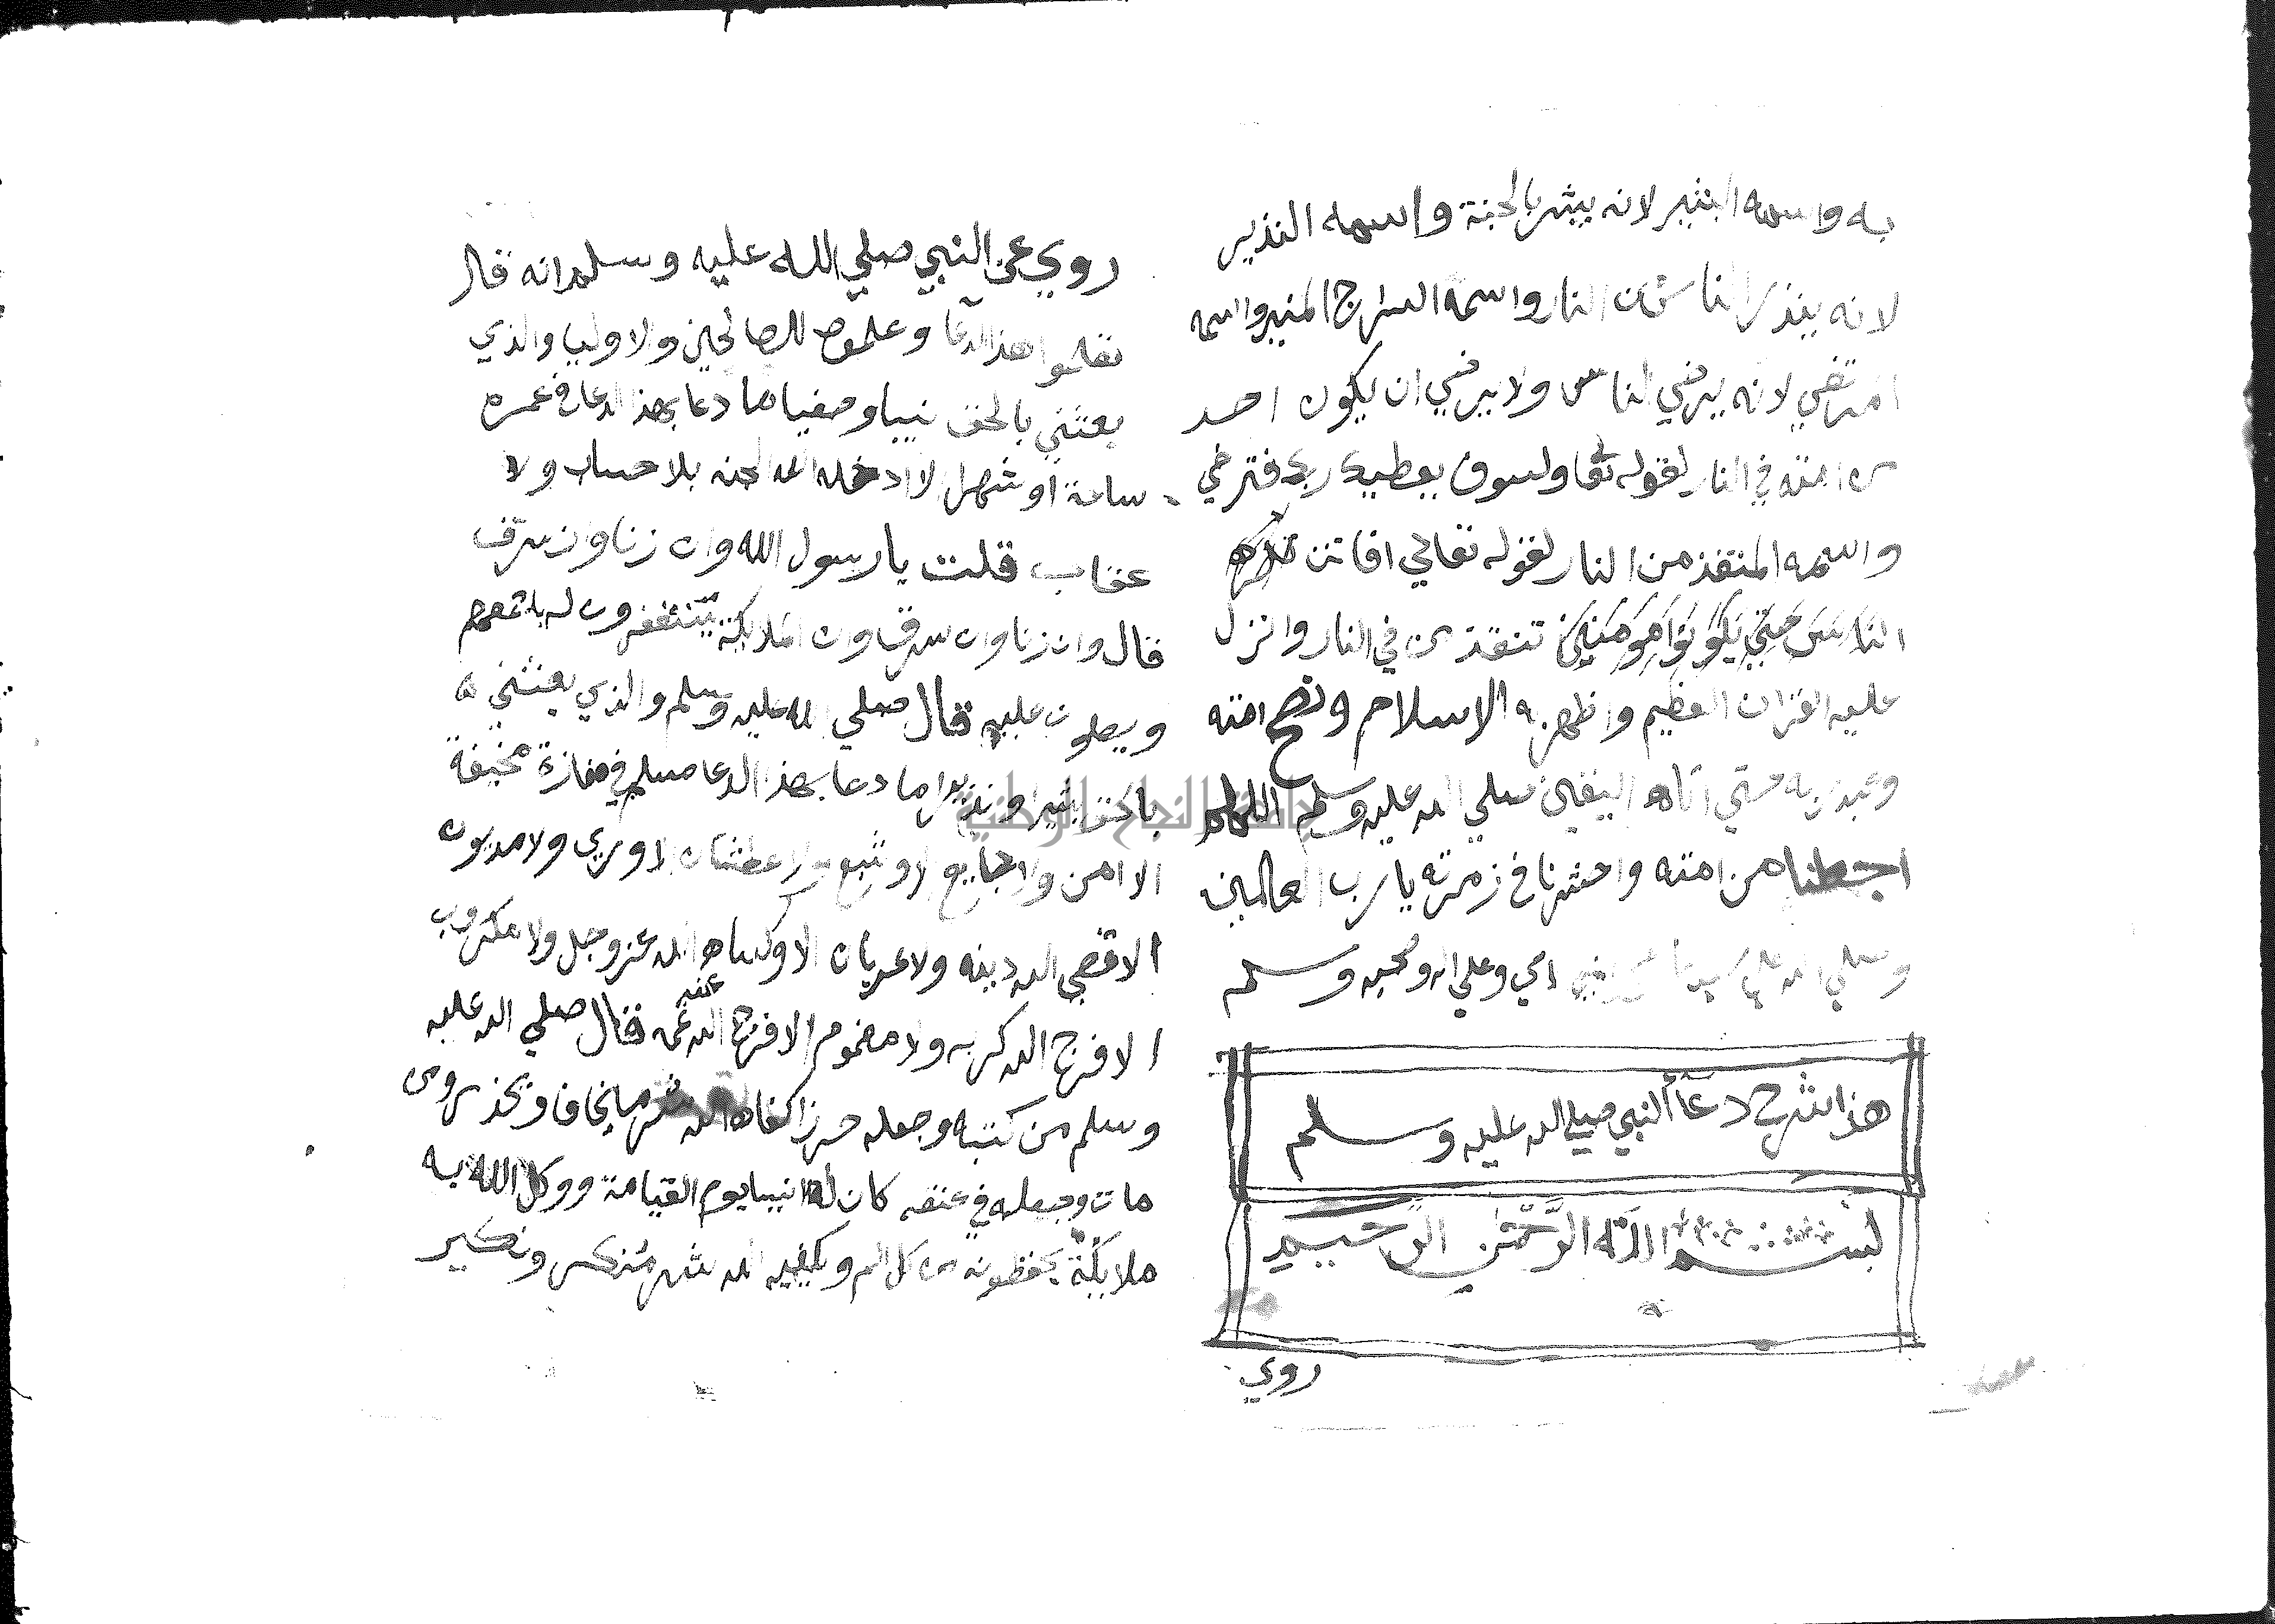 به واسمه البشير لانه يبشر بالجنة واسمه النذير
لانه ينذر الناس من النار واسمه السراج المنير واسمه
المرتضي لانه يرضي الناس ولا يرضي ان يكون احد
من امته في النار لقوله تعا ولسوف يعطيك ربك فترضي
واسمه المنقذ من النار لقوله تعالي افانت تكره
الناس حتي يكونوا مومنين تنقذ من في النار وانزل
عليه القران العظيم واظهر به الاسلام ونصح امته
وعبد ربه حتي اتاه اليقين صلي الله عليه وسلم اللهم
اجعلنا من امته واحشرنا في زمرته يا رب العالمين
وصلي الله علي سيدنا محمد النبي الامي وعلي اله وصحبه وسلم
هذا شرح دعآ النبي صلي الله عليه وسلم
بسم الله الرحمن الرحيم
روي
روي عن النبي صلي الله عليه وسلم انه قال
تعلموا هذا الدعآ وعلموه للصالحين والاوليا والذي
بعثني بالحق نبيا وصفيا ما دعا بهذا الدعا في عمره
ساعة او شهرا الا ادخله الله الجنه بلا حساب ولا
عقاب قلت يا رسول الله وان زنا وان سرق
قال وان زنا وان سرق وان الملايكة يستغفرون له باجمعهم
ويصلون عليه قال صلي الله عليه وسلم والذي بعثني
بالحق بشيرا ونذيرا ما دعا بهذا الدعا مسلم في مفازة مخيفة
الا امن ولا جايع الا وشبع ولا عطشان الا وروي ولا مديون
الا قضي الله دينه ولا عريان الا وكساه الله عز وجل ولا مكروب
الا فرج الله كربه ولا مغموم الا فرج الله عنه غمه فقال صلي الله عليه
وسلم من كتبه وجعله حرزا كفاه الله شر ما يخاف ويحذر ومن
مات وجعله في عنقه كان له انيسا يوم القيامة ووكل الله به
ملايكة يحفظونه من كل الم ويكفيه الله شر منكر ونكير
جامعة النجاح الوطنية